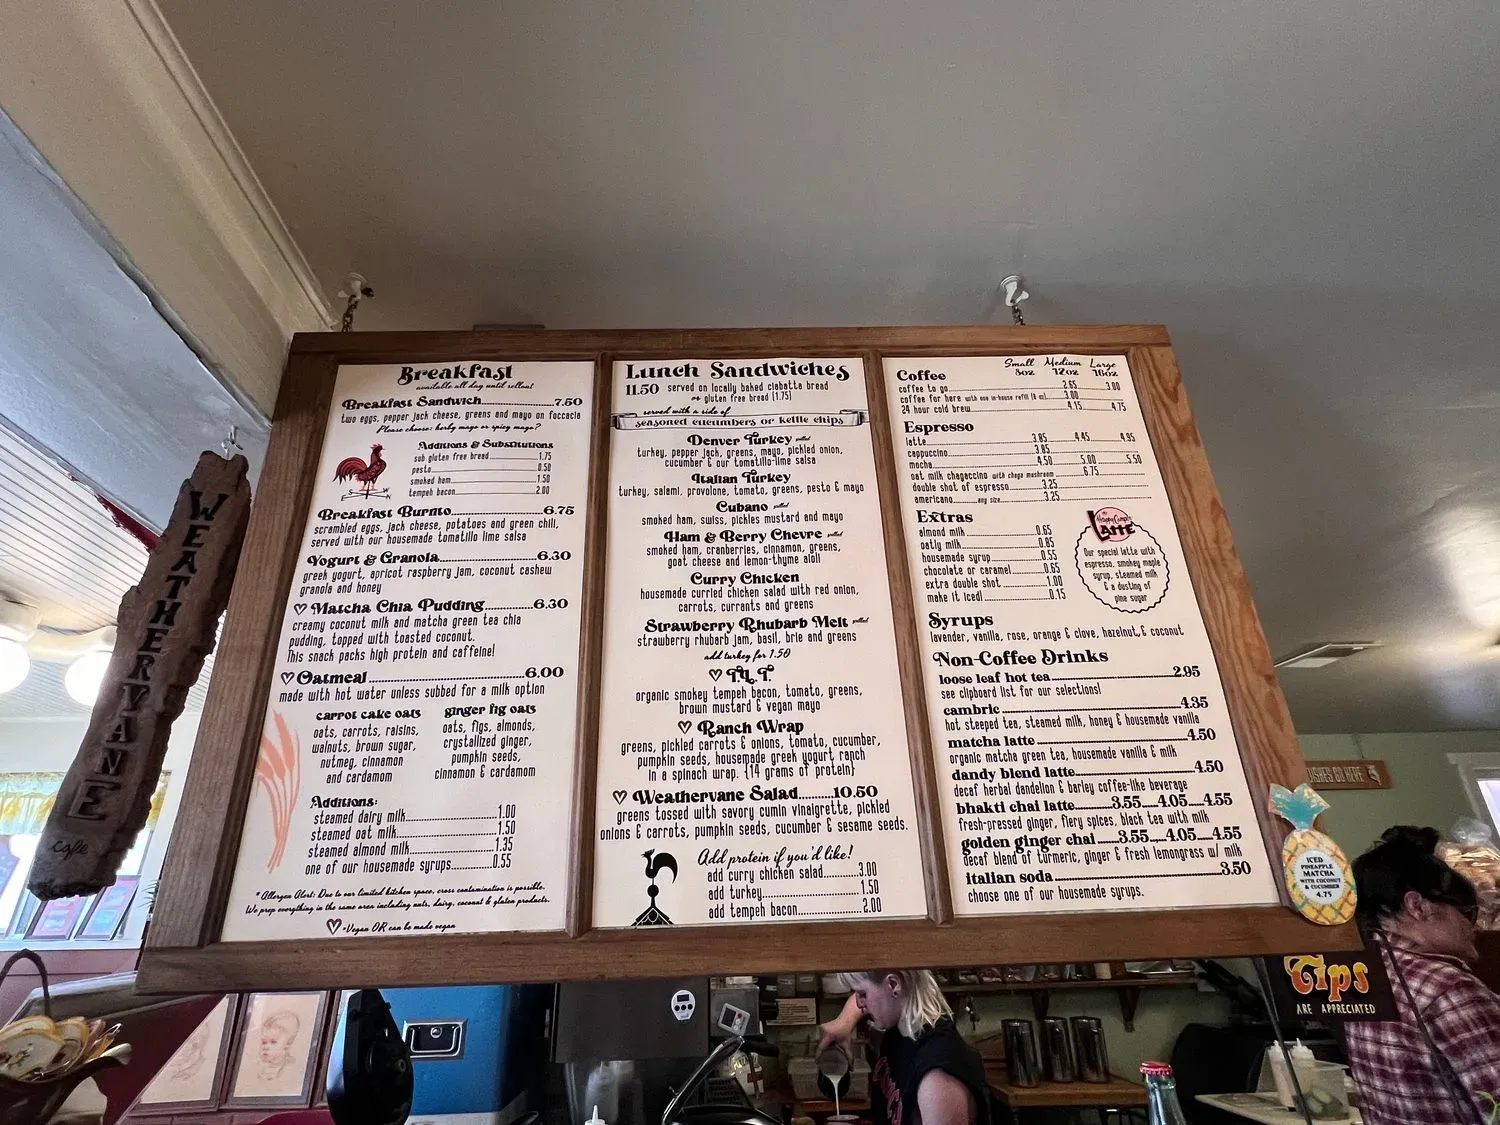 WEATHERVANE
cafe
Breakfast
available all day until sellout
Breakfast Sandwich 7.50
two eggs, pepper jack cheese, greens and mayo on foccacia
Please choose: herby mayo or spicy mayo?
Additions & Substitutions
sub gluten free bread 1.75
pesto 0.50
smoked ham 1.50
tempeh bacon 2.00
Breakfast Burrito 6.75
scrambled eggs, jack cheese, potatoes and green chili,
served with our housemade tomatillo lime salsa
Yogurt & Granola 6.30
greek yogurt, apricot raspberry jam, coconut cashew
granola and honey
♡ Matcha Chia Pudding 6.30
creamy coconut milk and matcha green tea chia
pudding, topped with toasted coconut.
This snack packs high protein and caffeine!
♡ Oatmeal 6.00
made with hot water unless subbed for a milk option
carrot cake oats
oats, carrots, raisins,
walnuts, brown sugar,
nutmeg, cinnamon
and cardamom
ginger fig oats
oats, figs, almonds,
crystallized ginger,
pumpkin seeds,
cinnamon & cardamom
Additions:
steamed dairy milk 1.00
steamed oat milk 1.50
steamed almond milk 1.35
one of our housemade syrups 0.55
* Allergen Alert: Due to our limited kitchen space, cross contamination is possible.
We prep everything in the same area including nuts, dairy, coconut & gluten products.
♡ =Vegan OR can be made vegan
Lunch Sandwiches
11.50 served on locally baked ciabatta bread
or gluten free bread (1.75)
served with a side of
seasoned cucumbers or kettle chips
Denver Turkey grilled
turkey, pepper jack, greens, mayo, pickled onion,
cucumber & our tomatillo-lime salsa
Italian Turkey
turkey, salami, provolone, tomato, greens, pesto & mayo
Cubano grilled
smoked ham, swiss, pickles mustard and mayo
Ham & Berry Chevre grilled
smoked ham, cranberries, cinnamon, greens,
goat cheese and lemon-thyme aioli
Curry Chicken
housemade curried chicken salad with red onion,
carrots, currants and greens
Strawberry Rhubarb Melt grilled
strawberry rhubarb jam, basil, brie and greens
add turkey for 1.50
♡ T.L.T.
organic smokey tempeh bacon, tomato, greens,
brown mustard & vegan mayo
♡ Ranch Wrap
greens, pickled carrots & onions, tomato, cucumber,
pumpkin seeds, housemade greek yogurt ranch
in a spinach wrap. {14 grams of protein}
♡ Weathervane Salad 10.50
greens tossed with savory cumin vinaigrette, pickled
onions & carrots, pumpkin seeds, cucumber & sesame seeds.
Add protein if you'd like!
add curry chicken salad 3.00
add turkey 1.50
add tempeh bacon 2.00
Small Medium Large
8oz 12oz 16oz
Coffee
coffee to go 2.65 3.00
coffee for here with one in-house refill (8 oz) 3.00
24 hour cold brew 4.15 4.75
Espresso
latte 3.85 4.45 4.95
cappuccino 3.85
mocha 4.50 5.00 5.50
oat milk chagaccino with chaga mushroom 6.75
double shot of espresso 3.25
americano any size 3.25
Extras
almond milk 0.65
oatly milk 0.85
housemade syrup 0.55
chocolate or caramel 0.65
extra double shot 1.00
make it iced! 0.15
Happy Camper
LATTE
Our special latte with
espresso, smokey maple
syrup, steamed milk
& a dusting of
pine sugar
Syrups
lavender, vanilla, rose, orange & clove, hazelnut, & coconut
Non-Coffee Drinks
loose leaf hot tea 2.95
see clipboard list for our selections!
cambric 4.35
hot steeped tea, steamed milk, honey & housemade vanilla
matcha latte 4.50
organic matcha green tea, housemade vanilla & milk
dandy blend latte 4.50
decaf herbal dandelion & barley coffee-like beverage
bhakti chai latte 3.55 4.05 4.55
fresh-pressed ginger, fiery spices, black tea with milk
golden ginger chai 3.55 4.05 4.55
decaf blend of turmeric, ginger & fresh lemongrass w/ milk
italian soda 3.50
choose one of our housemade syrups.
ICED
PINEAPPLE
MATCHA
WITH COCONUT
& CUCUMBER
4.75
DISHES GO HERE
Tips
ARE APPRECIATED